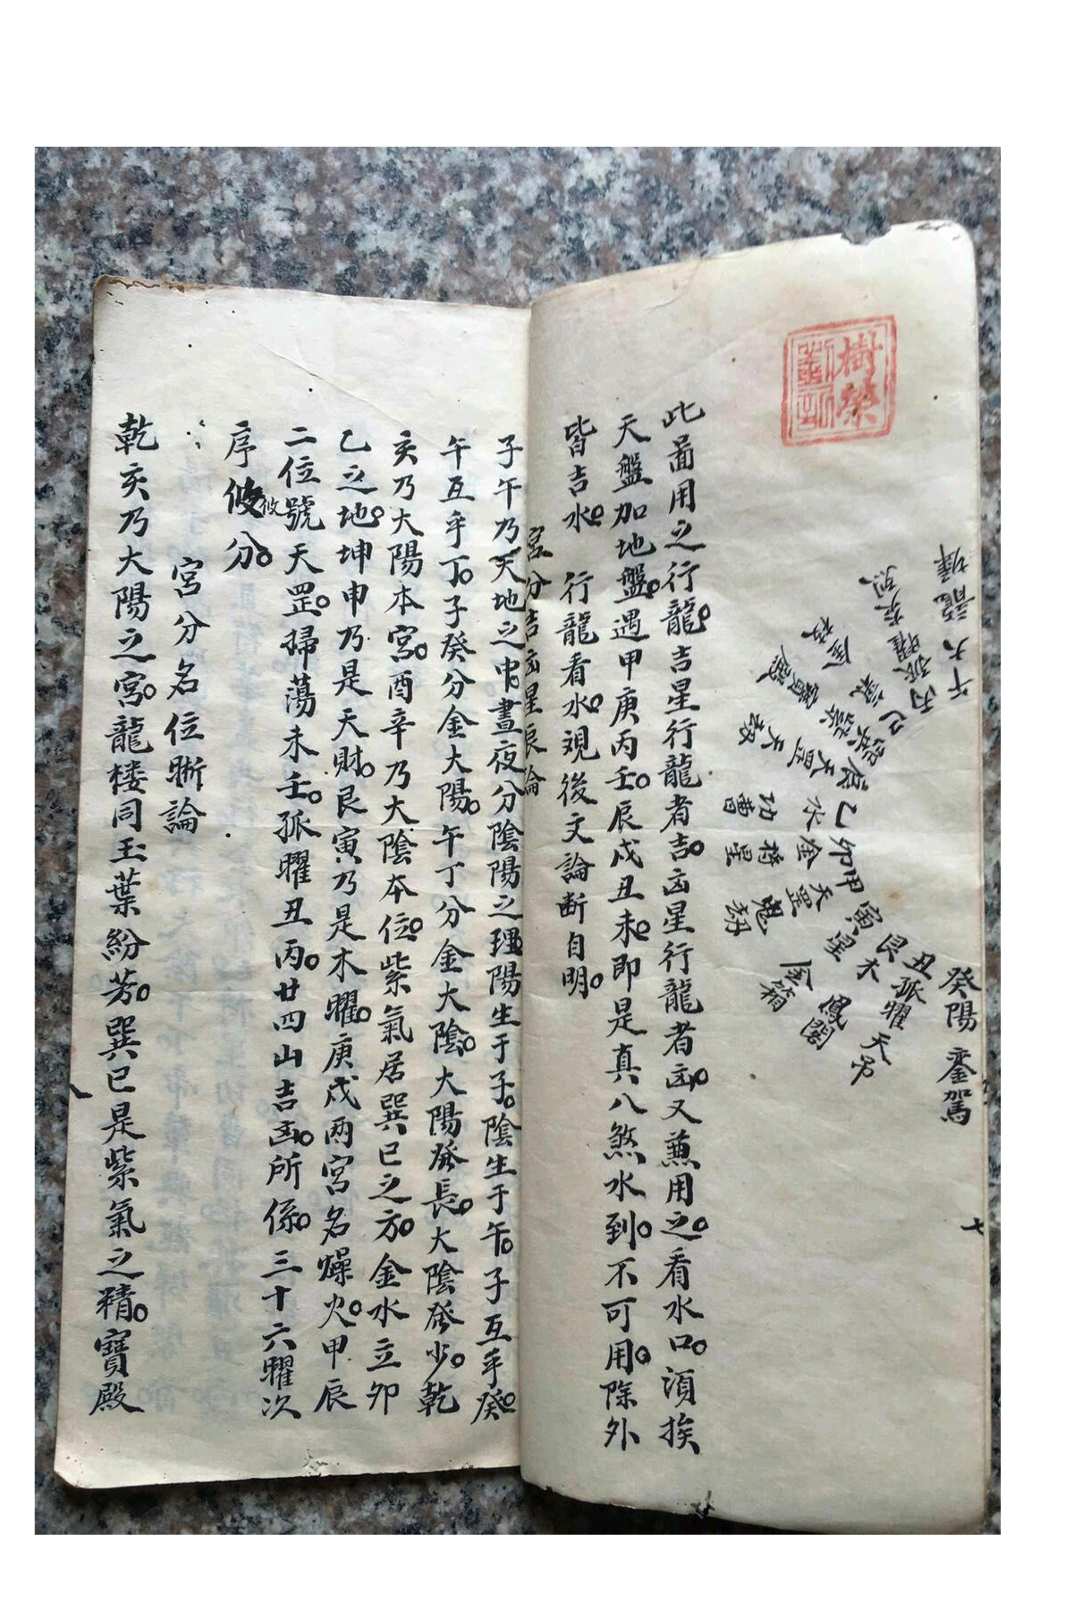 樹榮
癸陽 鑾駕
丑孤曜天弔
艮木 鳳閣
寅星 金箱
甲天罡 鬼劫
卯金 將星
乙水 功曹
辰天罡 天
巳紫氣 寶殿
丙孤曜
午大 龍墀
七
此啚用之行龍。吉星行龍者吉。凶星行龍者凶。又兼用之。看水口。須挨
天盤加地盤。遇甲庚丙壬。辰戌丑未。即是真八煞水到。不可用。除外
皆吉水。 行龍看水。視後文論断自明。
宮分吉凶星辰論
子午乃天地之中。晝夜分陰陽之理。陽生于子。陰生于午。子互乎癸。
午互乎丁。子癸分金大陽。午丁分金大陰。大陽發長。大陰發少。乾
亥乃大陽本宮。酉辛乃大陰本位。紫氣居巽巳之方。金水立卯
乙之地。坤申乃是天財。艮寅乃是木曜。庚戌兩宮名燥火。甲辰
二位號天罡。掃蕩未壬。孤曜丑丙。廿四山吉凶。所係。三十六曜次
序攸攸分。
宮分名位晰論
乾亥乃大陽之宮。龍楼同玉葉紛芳。巽巳是紫氣之精。寶殿